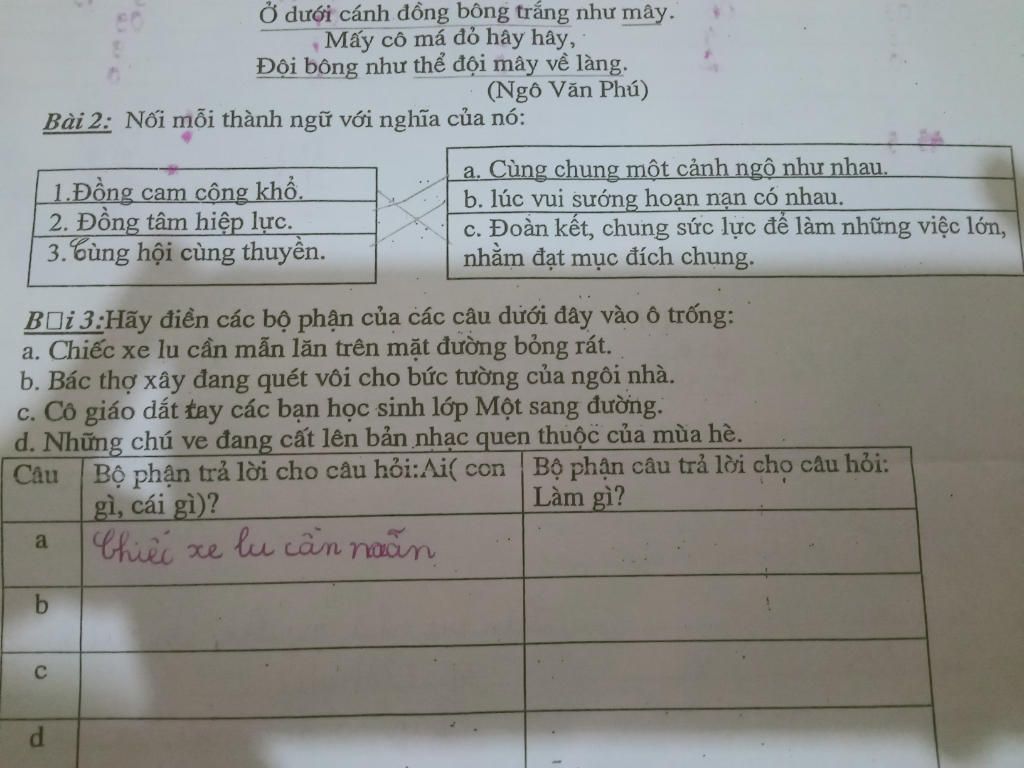 Ở dưới cánh đồng bông trắng như mây.
Mấy cô má đỏ hây hây,
Đội bông như thể đội mây về làng.
(Ngô Văn Phú)
Bài 2: Nối mỗi thành ngữ với nghĩa của nó:
1.Đồng cam cộng khổ.
2. Đồng tâm hiệp lực.
3. Cùng hội cùng thuyền.
a. Cùng chung một cảnh ngộ như nhau.
b. lúc vui sướng hoạn nạn có nhau.
c. Đoàn kết, chung sức lực để làm những việc lớn,
nhằm đạt mục đích chung.
B□i 3:Hãy điền các bộ phận của các câu dưới đây vào ô trống:
a. Chiếc xe lu cần mẫn lăn trên mặt đường bỏng rát.
b. Bác thợ xây đang quét vôi cho bức tường của ngôi nhà.
c. Cô giáo dắt tay các bạn học sinh lớp Một sang đường.
d. Những chú ve đang cất lên bản nhạc quen thuộc của mùa hè.
Câu
Bộ phận trả lời cho câu hỏi:Ai( con
gì, cái gì)?
Bộ phận câu trả lời cho câu hỏi:
Làm gì?
a
Chiếc xe lu cần mẫn
b
c
d